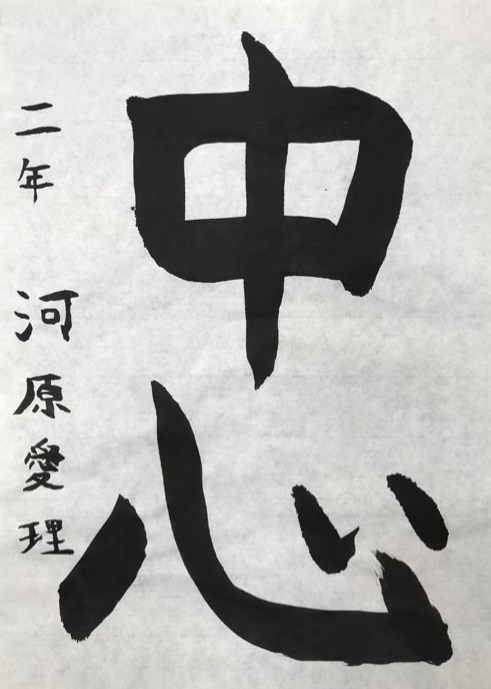 中心
二年 河原愛理